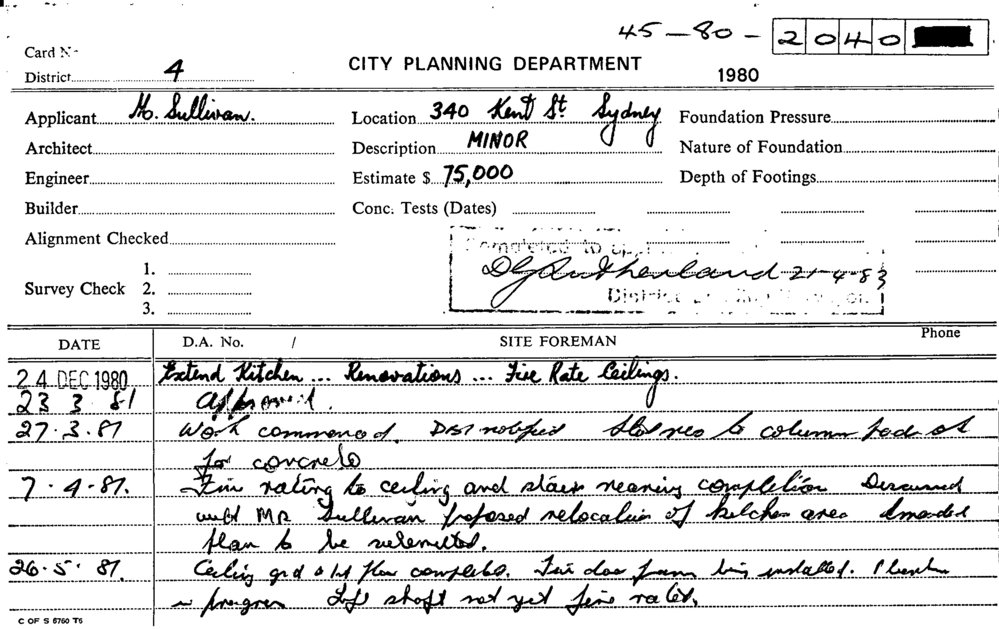 45-80-2040
Card No
District 4
CITY PLANNING DEPARTMENT
1980
Applicant M. Sullivan. Location 340 Kent St. Sydney Foundation Pressure
Architect Description MINOR Nature of Foundation
Engineer Estimate $ 75,000 Depth of Footings
Builder Conc. Tests (Dates)
Alignment Checked
Completed to
Survey Check 1. 2. 3.
DGRutherland 21-4-83
District
DATE D.A. No. / SITE FOREMAN Phone
24 DEC 1980 Extend Kitchen ... Renovations ... Fire Rate Ceilings.
23 3 81 approved.
27.3.81 Work commenced. Dist notified to column pads ok
for concrete
7.4.81. Fire rating to ceiling and stairs nearing completion Discussed
with Mr Sullivan proposed relocation of kitchen area Amended
plan to be submitted.
26.5.81. Ceiling grd & 1st flor completed. Fire door frames being installed.
in progress Lift shaft not yet fire rated.
C OF S 6760 T5